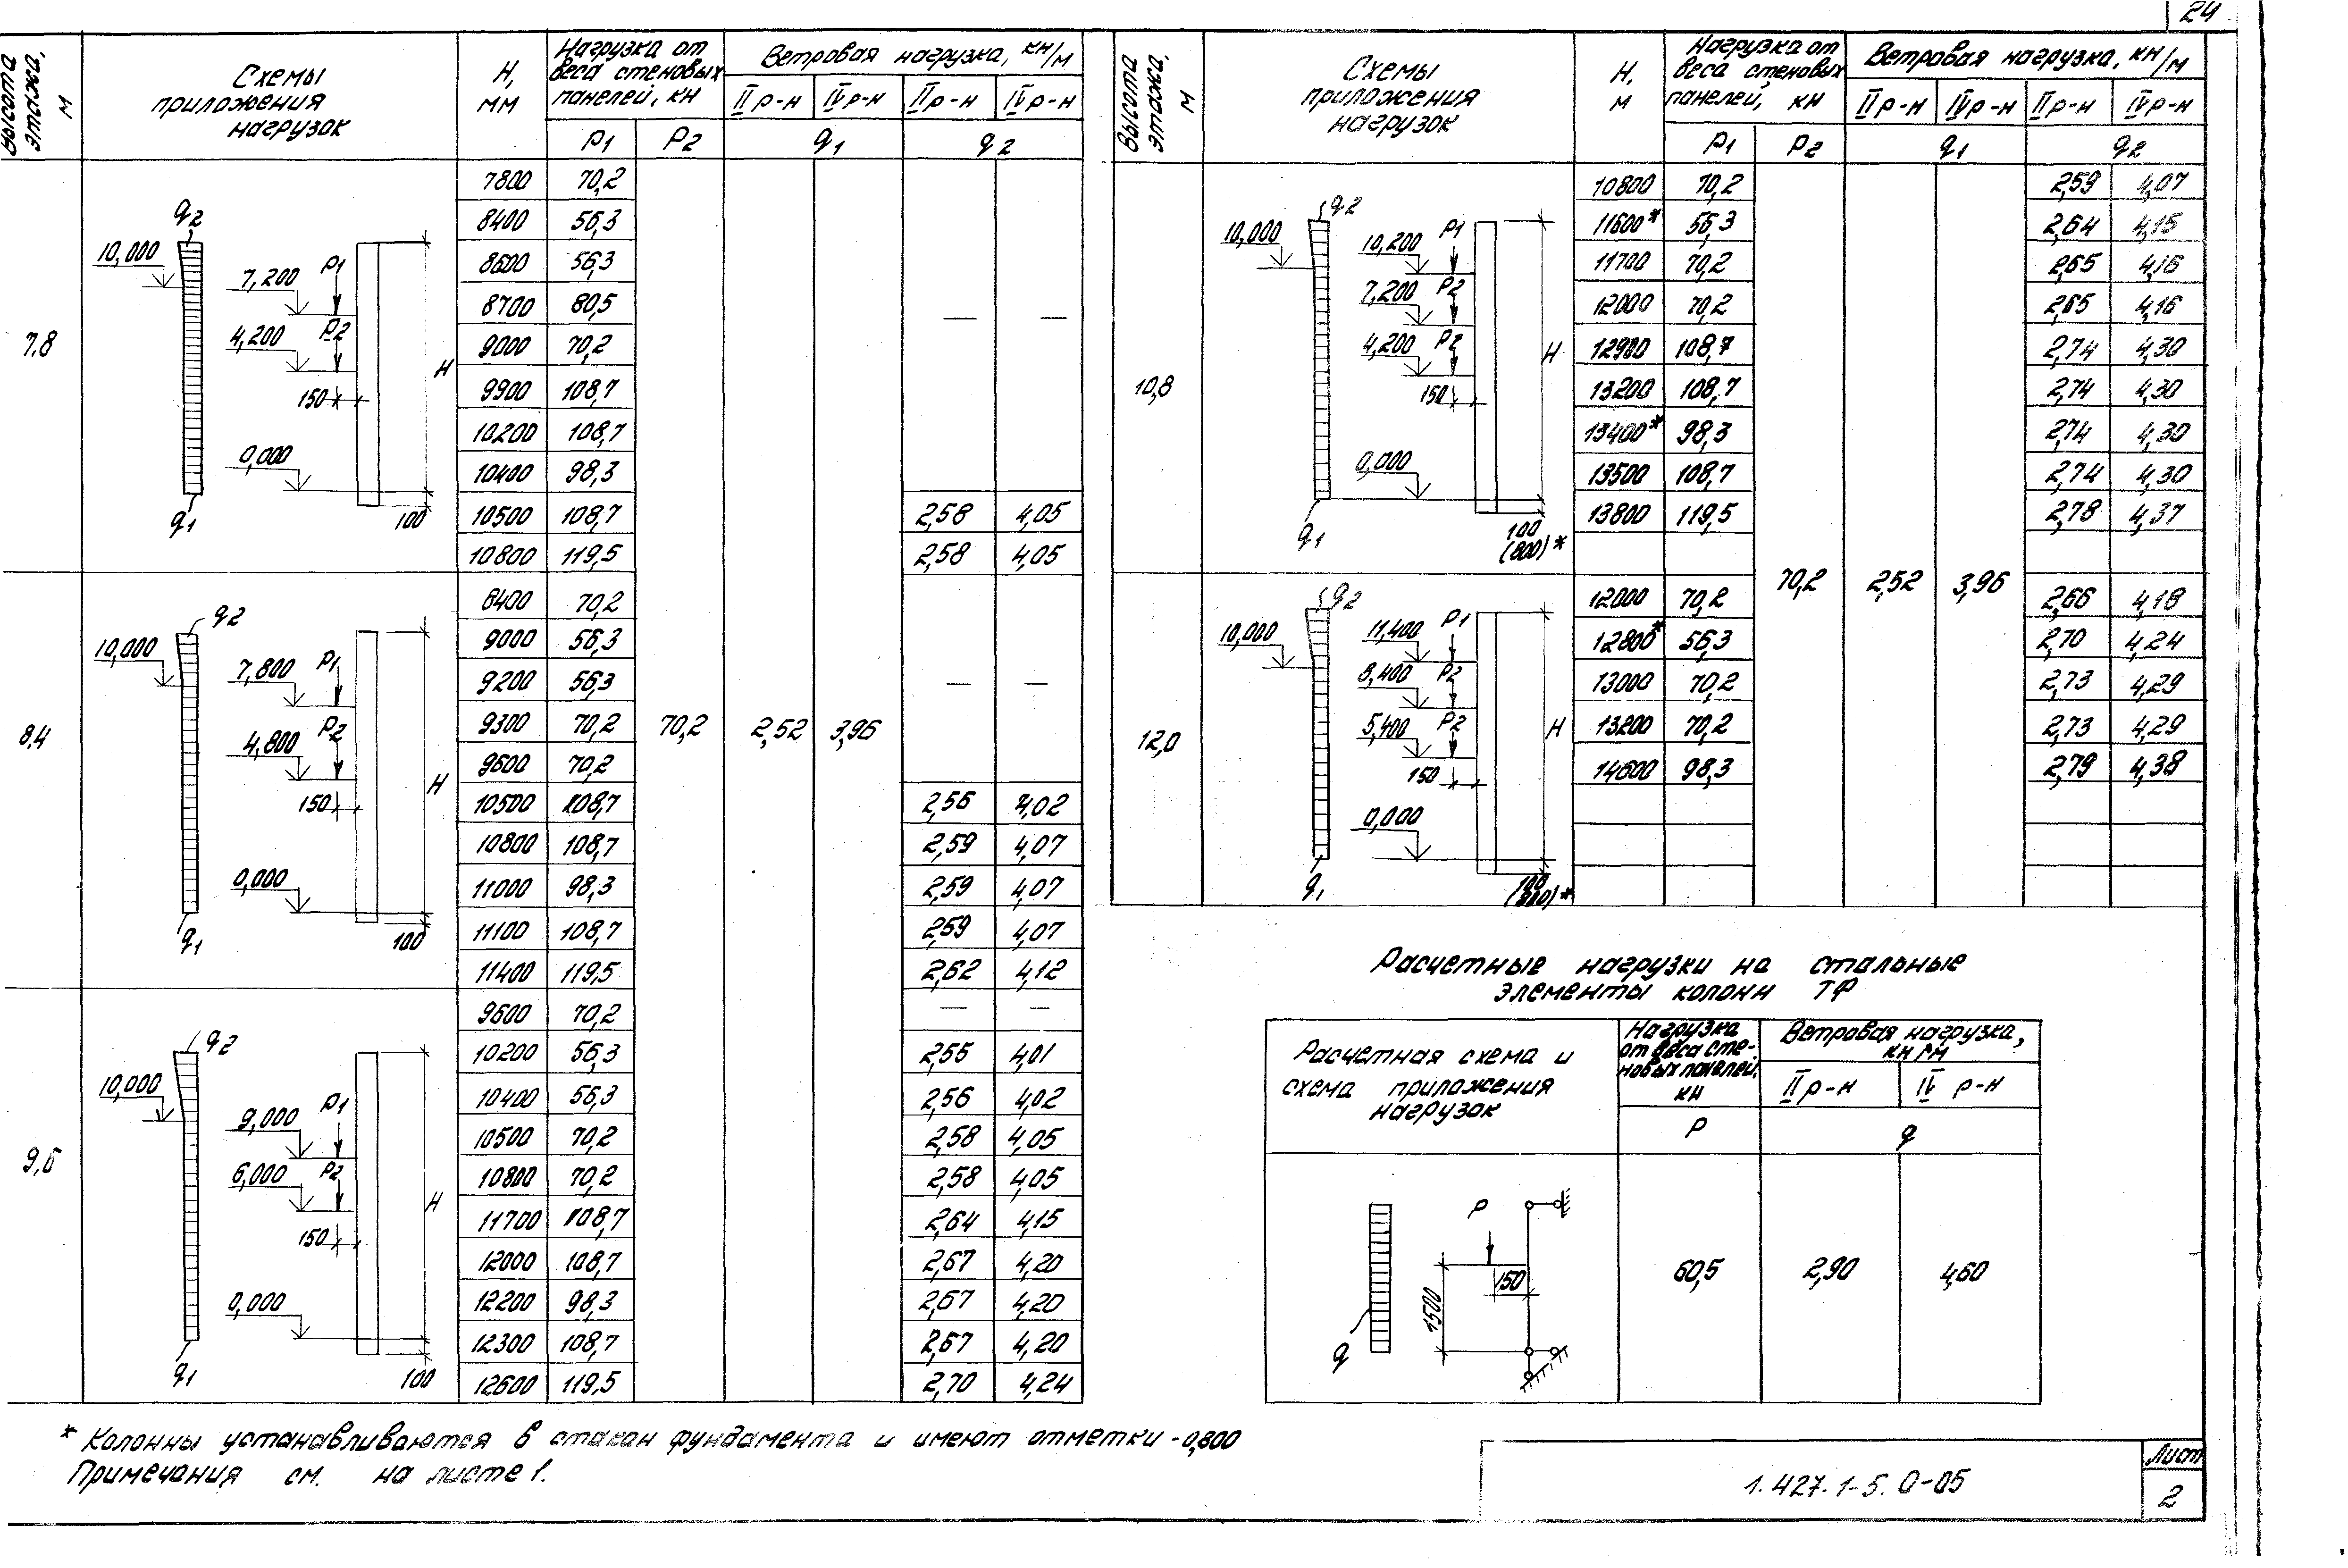 24
Высота этажа, м
Схемы
приложения
нагрузок
Н,
мм
Нагрузка от
веса стеновых
панелей, кН
Р1 Р2
Ветровая нагрузка, кН/м
II р-н IV р-н II р-н IV р-н
q1 q2
7,8
q2
10,000
7,200 Р1
4,200 Р2
150
Н
0,000
q1
100
7800 70,2
8400 56,3
8600 56,3
8700 80,5
— —
9000 70,2
9900 108,7
10200 108,7
10400 98,3
10500 108,7 2,58 4,05
10800 119,5 2,58 4,05
8,4
q2
10,000
7,800 Р1
4,800 Р2
150
Н
0,000
q1
100
8400 70,2
9000 56,3
9200 56,3 — —
9300 70,2 70,2 2,52 3,96
9600 70,2
10500 108,7 2,56 4,02
10800 108,7 2,59 4,07
11000 98,3 2,59 4,07
11100 108,7 2,59 4,07
11400 119,5 2,62 4,12
9,6
q2
10,000
9,000 Р1
6,000 Р2
150
Н
0,000
q1
100
9600 70,2 — —
10200 56,3 2,55 4,01
10400 56,3 2,56 4,02
10500 70,2 2,58 4,05
10800 70,2 2,58 4,05
11700 108,7 2,64 4,15
12000 108,7 2,67 4,20
12200 98,3 2,67 4,20
12300 108,7 2,67 4,20
12600 119,5 2,70 4,24
Высота этажа, м
Схемы
приложения
нагрузок
Н,
м
Нагрузка от
веса стеновых
панелей, кН
Р1 Р2
Ветровая нагрузка, кН/м
II р-н IV р-н II р-н IV р-н
q1 q2
10,8
q2
10,000
10,200 Р1
7,200 Р2
4,200 Р2
150
Н
0,000
q1
100
(800)*
10800 70,2 2,59 4,07
11600* 56,3 2,64 4,15
11700 70,2 2,65 4,16
12000 70,2 2,65 4,16
12900 108,7 2,74 4,30
13200 108,7 2,74 4,30
13400* 98,3 2,74 4,30
13500 108,7 2,74 4,30
13800 119,5 2,78 4,37
70,2 2,52 3,96
12,0
q2
10,000
11,400 Р1
8,400 Р2
5,400 Р2
150
Н
0,000
q1
100
(800)*
12000 70,2 2,66 4,18
12800* 56,3 2,70 4,24
13000 70,2 2,73 4,29
13200 70,2 2,73 4,29
14600 98,3 2,79 4,38
Расчетные нагрузки на стальные
элементы колонн ТФ
Расчетная схема и
схема приложения
нагрузок
Нагрузка
от веса сте-
новых панелей,
кН
Р
Ветровая нагрузка,
кН/м
II р-н IV р-н
q
Р
150
1500
q
60,5 2,90 4,60
* Колонны устанавливаются в стакан фундамента и имеют отметки -0,800
Примечания см. на листе 1.
1.427.1-5.0-05
Лист
2